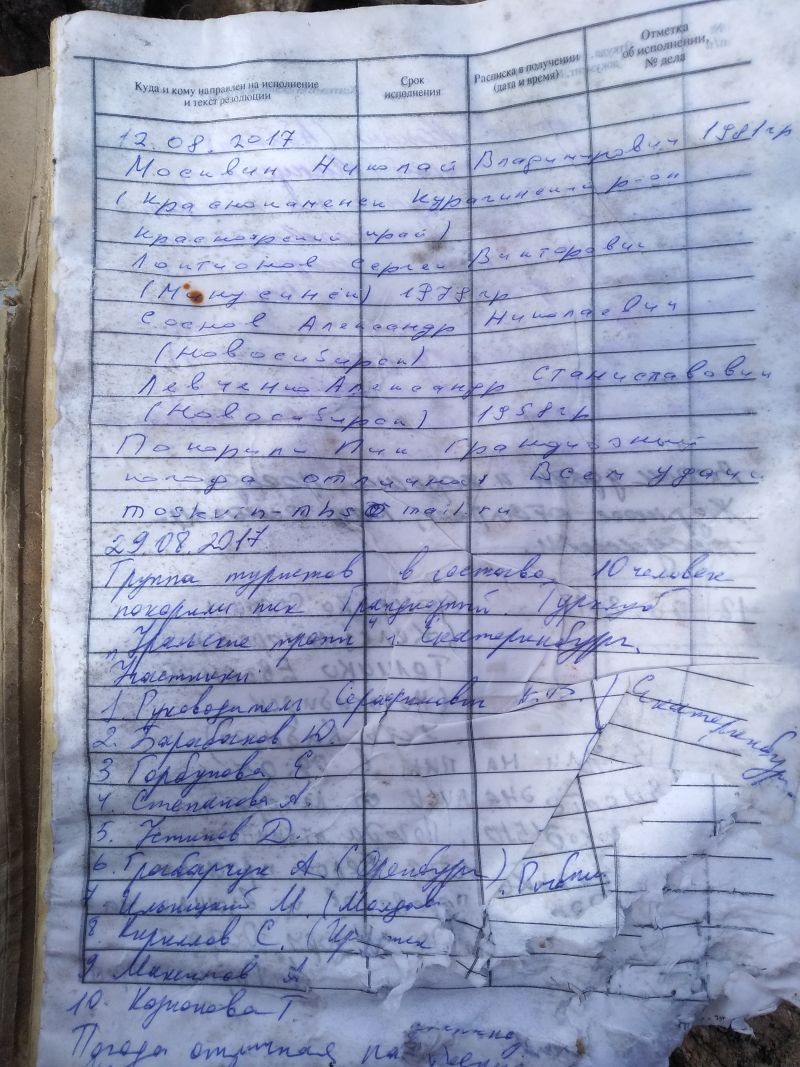 Куда и кому направлен на исполнение
и текст резолюции
Срок
исполнения
Расписка в получении
(дата и время)
Отметка
об исполнении,
№ дела
12.08.2017
Москвин Николай Владимирович 1981гр
(Краснокаменск Курагинский р-он
Красноярский край)
Локтионов Сергей Викторович
(Минусинск) 1979гр
Соснов Александр Николаевич
(Новосибирск)
Левченко Александр Станиславович
(Новосибирск) 1958гр
Покорили Пик Грандиозный
погода отличная Всем удачи
29.08.2017
Группа туристов в составе 10 человек
покорили пик Грандиозный. Турклуб
"Уральские тропы" г. Екатеринбург.
Участники:
1. Руководитель Серафимович Екатеринбург
2. Барабанов Ю.
3 Горбунова Е
4. Степанова А.
5. Устинов Д.
6. Грабарчук А (Оренбург)
7. Ильницкий М (Молдов
8. Кириллов С.
9. Максимов А
10. Казакова Т.
Погода отличная